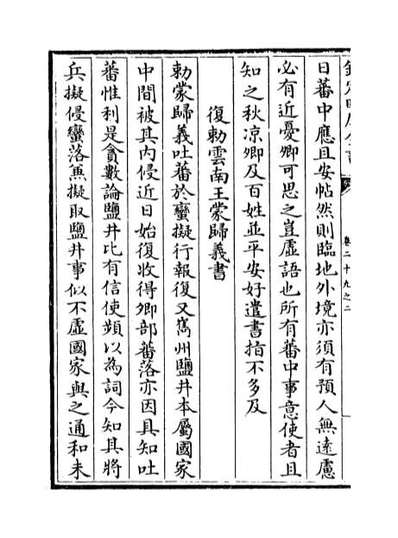 欽定四庫全書
卷二十九之二
日蕃中應且安帖然則臨地外境亦須有預人無遠慮
必有近憂卿可思之豈虛語也所有蕃中事意使者且
知之秋涼卿及百姓並平安好遣書指不多及
復勅雲南王蒙歸義書
勅蒙歸義吐蕃於蠻擬行報復又巂州鹽井本屬國家
中間被其內侵近日始復收得卿部蕃落亦因具知吐
蕃惟利是貪數論鹽井比有信使頻以為詞今知其將
兵擬侵蠻落兼擬取鹽井事似不虛國家與之通和未